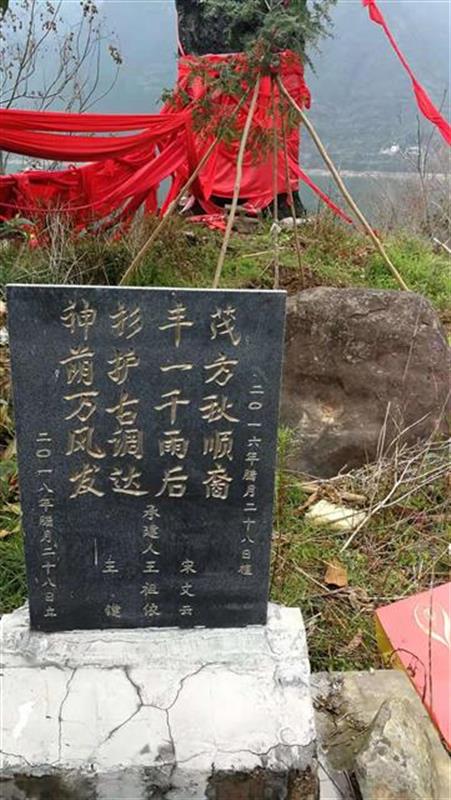 二〇一六年腊月二十八日植
茂方秋顺裔
丰一千雨后
杉护古调达
神荫万风发
宋文云
承建人王祖俊
王
二〇一八年腊月二十八日立